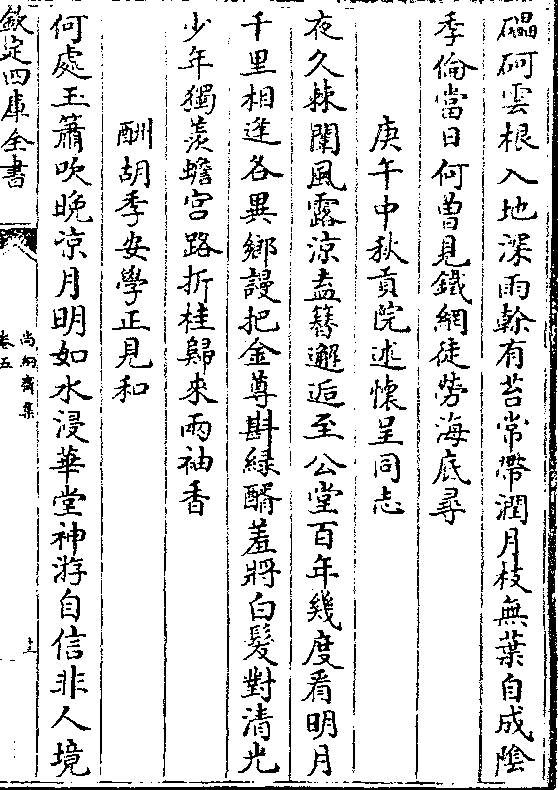 礧砢雲根入地深雨榦有苔常帶潤月枝無葉自成陰
季倫當日何曽見鐵網徒勞海底尋
庚午中秋貢院述懷呈同志
夜久棘闈風露涼盍簪邂逅至公堂百年幾度看明月
千里相逢各異鄉謾把金尊斟緑醑羞將白髮對清光
少年獨羨蟾宫路折桂歸來兩袖香
酬胡季安學正見和
何處玉簫吹晩涼月明如水浸華堂神游自信非人境
欽定四庫全書
尚絅齋集
卷五